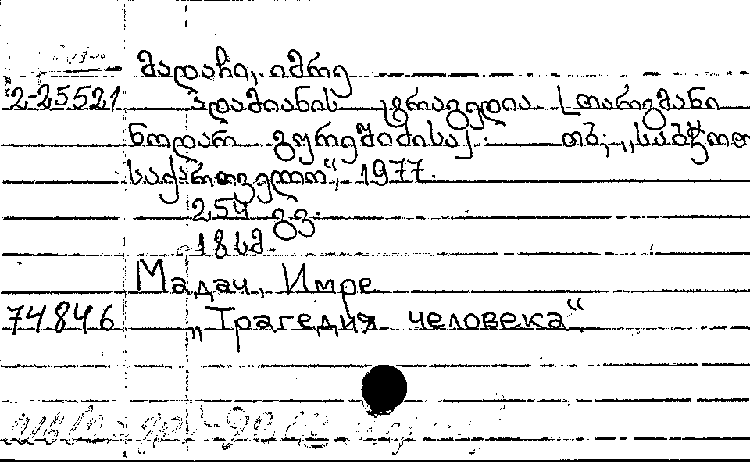 მადაჩი, იმრე
2-25521 ადამიანის ტრაგედია [თარგმანი
ნოდარ გურეშიძისა]. თბ., „საბჭოთა
საქართველო“, 1977.
254 გვ.
18 სმ.
Мадач, Имре
74846 „Трагедия человека“.